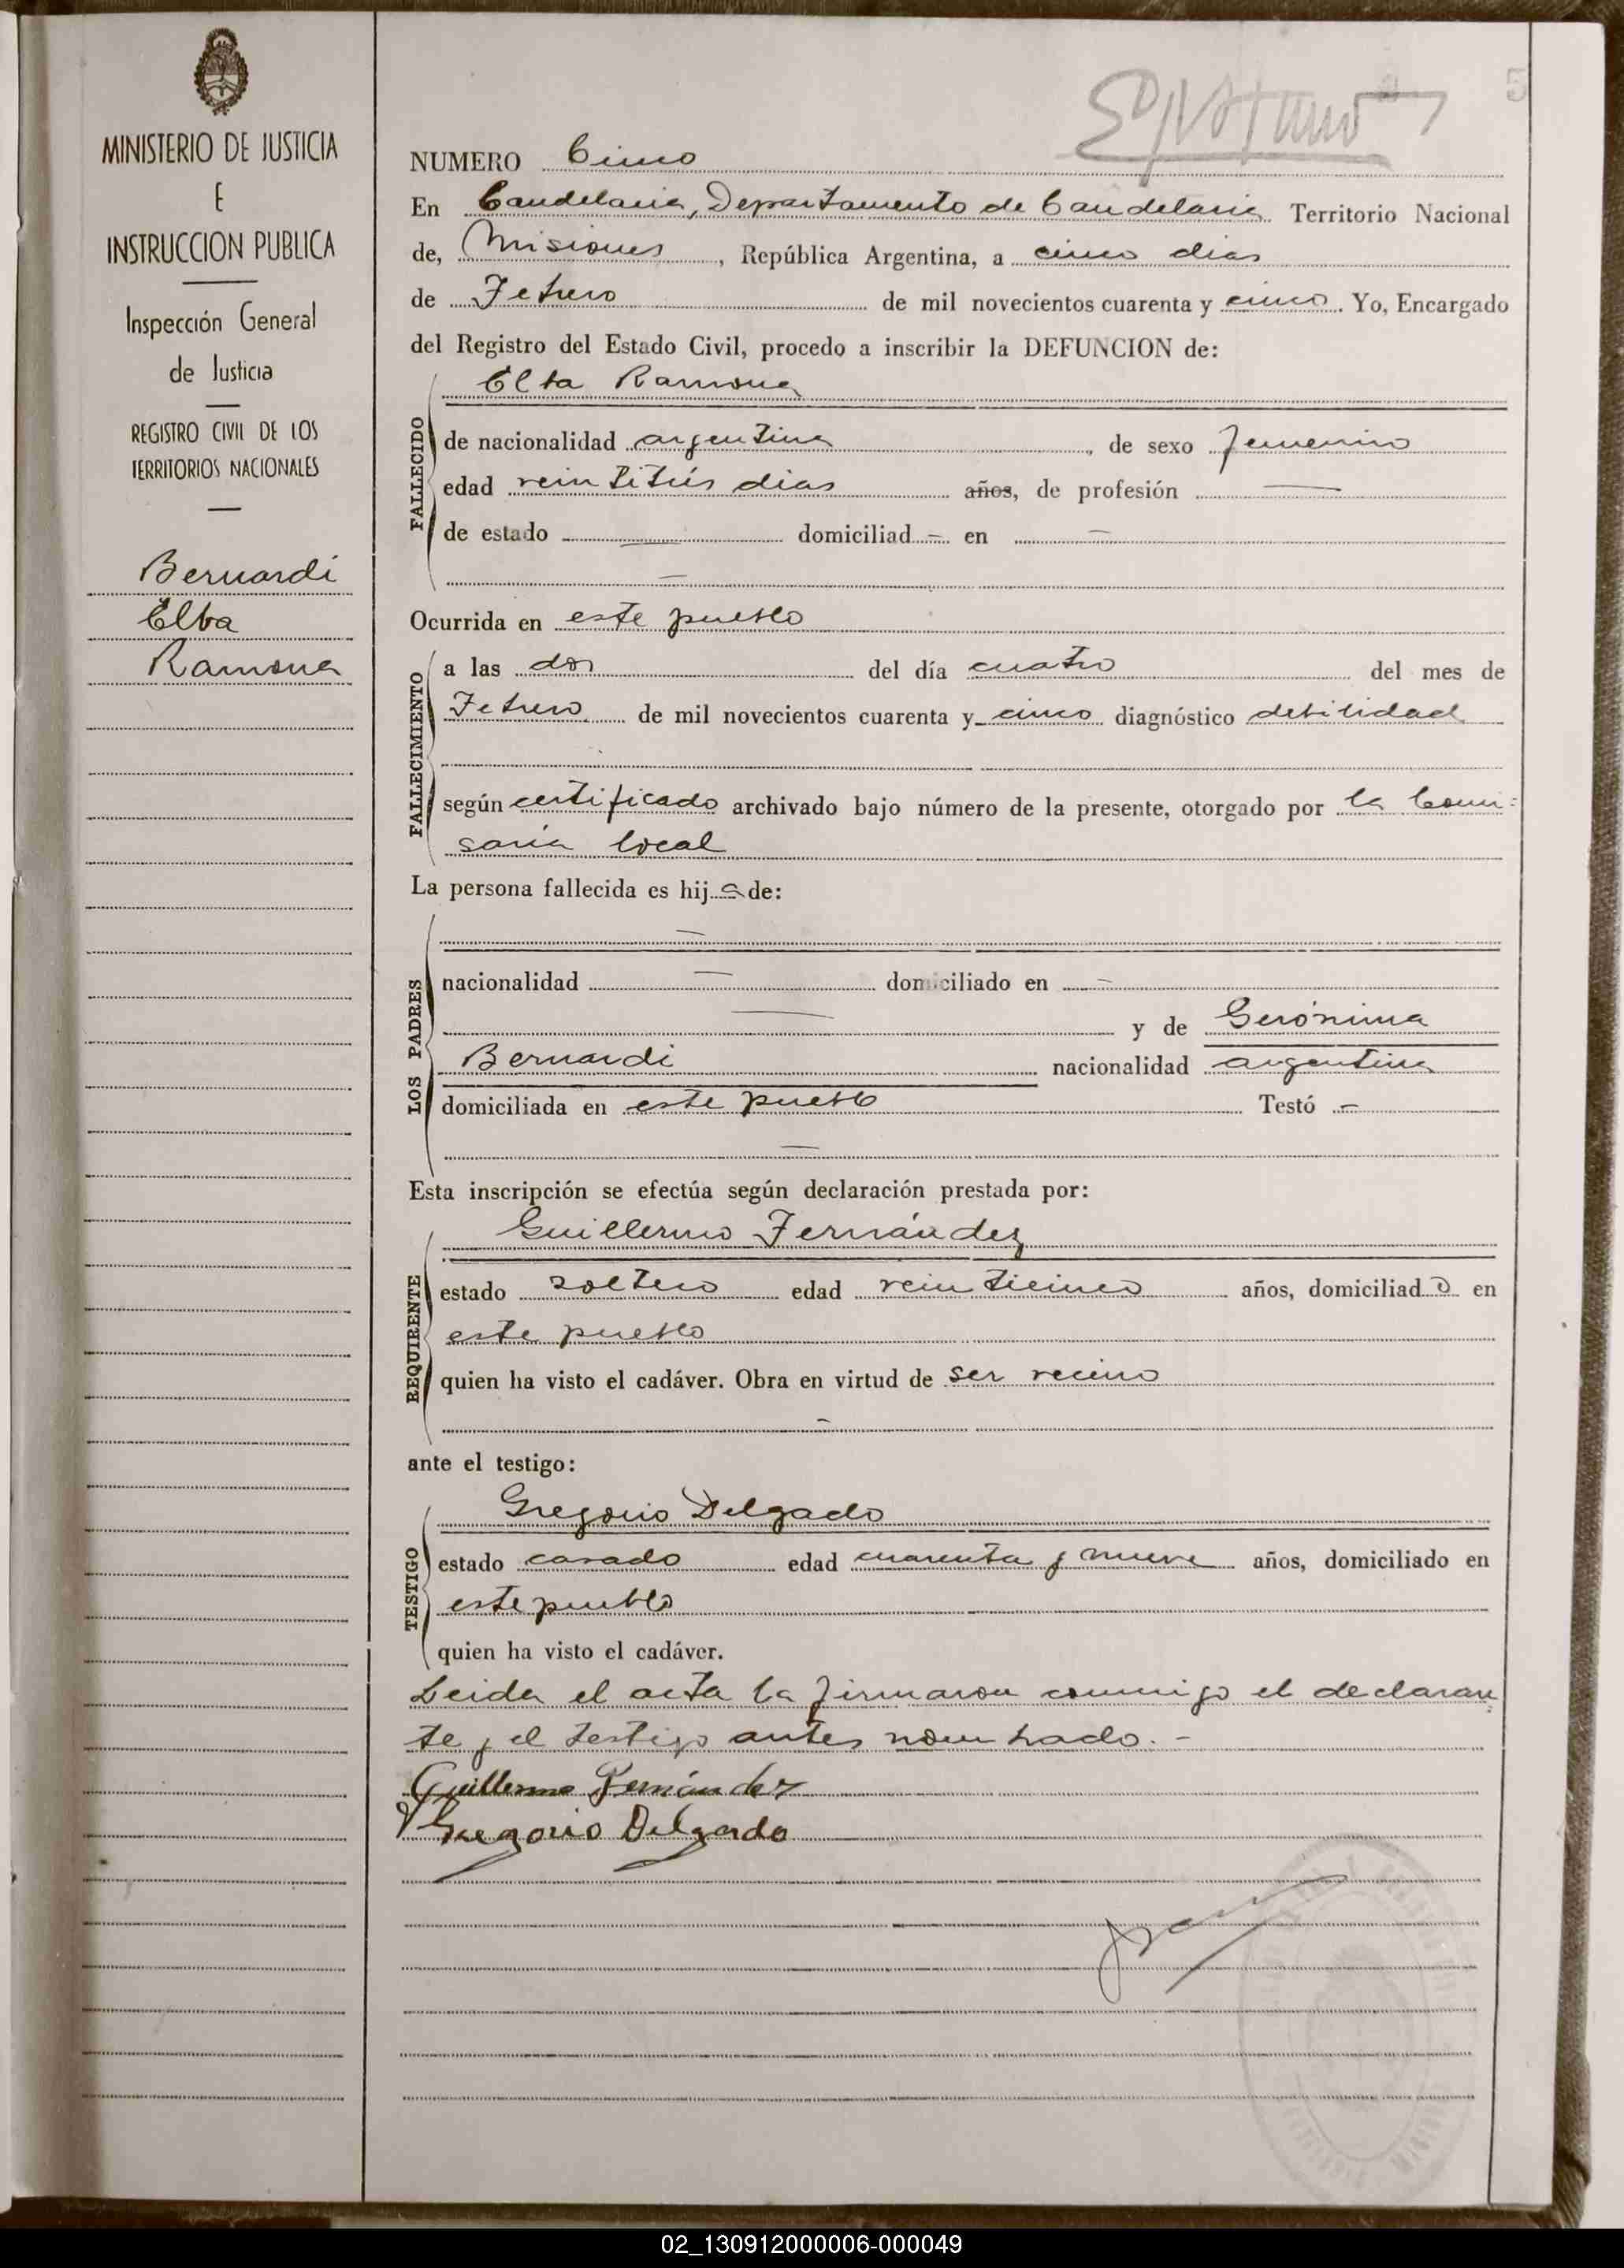 MINISTERIO DE JUSTICIA
E
INSTRUCCION PUBLICA
Inspección General
de Justicia
REGISTRO CIVIL DE LOS
TERRITORIOS NACIONALES
Bernardi
Elba
Ramona
5
NUMERO Cinco
En Candelaria, Departamento de Candelaria Territorio Nacional
de, Misiones, República Argentina, a cinco dias
de Febrero de mil novecientos cuarenta y cinco. Yo, Encargado
del Registro del Estado Civil, procedo a inscribir la DEFUNCION de:
Elba Ramona
FALLECIDO
de nacionalidad argentina, de sexo femenino
edad veintitrés dias años, de profesión —
de estado — domiciliad — en —
—
Ocurrida en este pueblo
FALLECIMIENTO
a las dos del día cuatro del mes de
Febrero de mil novecientos cuarenta y cinco diagnóstico debilidad
según certificado archivado bajo número de la presente, otorgado por la Comi=
saría local
La persona fallecida es hija de:
LOS PADRES
—
nacionalidad — domiciliado en —
— y de Gerónima
Bernardi nacionalidad argentina
domiciliada en este pueblo Testó —
—
Esta inscripción se efectúa según declaración prestada por:
REQUIRENTE
Guillermo Fernández
estado soltero edad veinticinco años, domiciliado en
este pueblo
quien ha visto el cadáver. Obra en virtud de ser vecino
—
ante el testigo:
TESTIGO
Gregorio Delgado
estado casado edad cuarenta y nueve años, domiciliado en
este pueblo
quien ha visto el cadáver.
Leida el acta la firmaron conmigo el declaran
te y el testigo antes nombrado. -
Guillermo Fernández
Gregorio Delgado
02_130912000006-000049